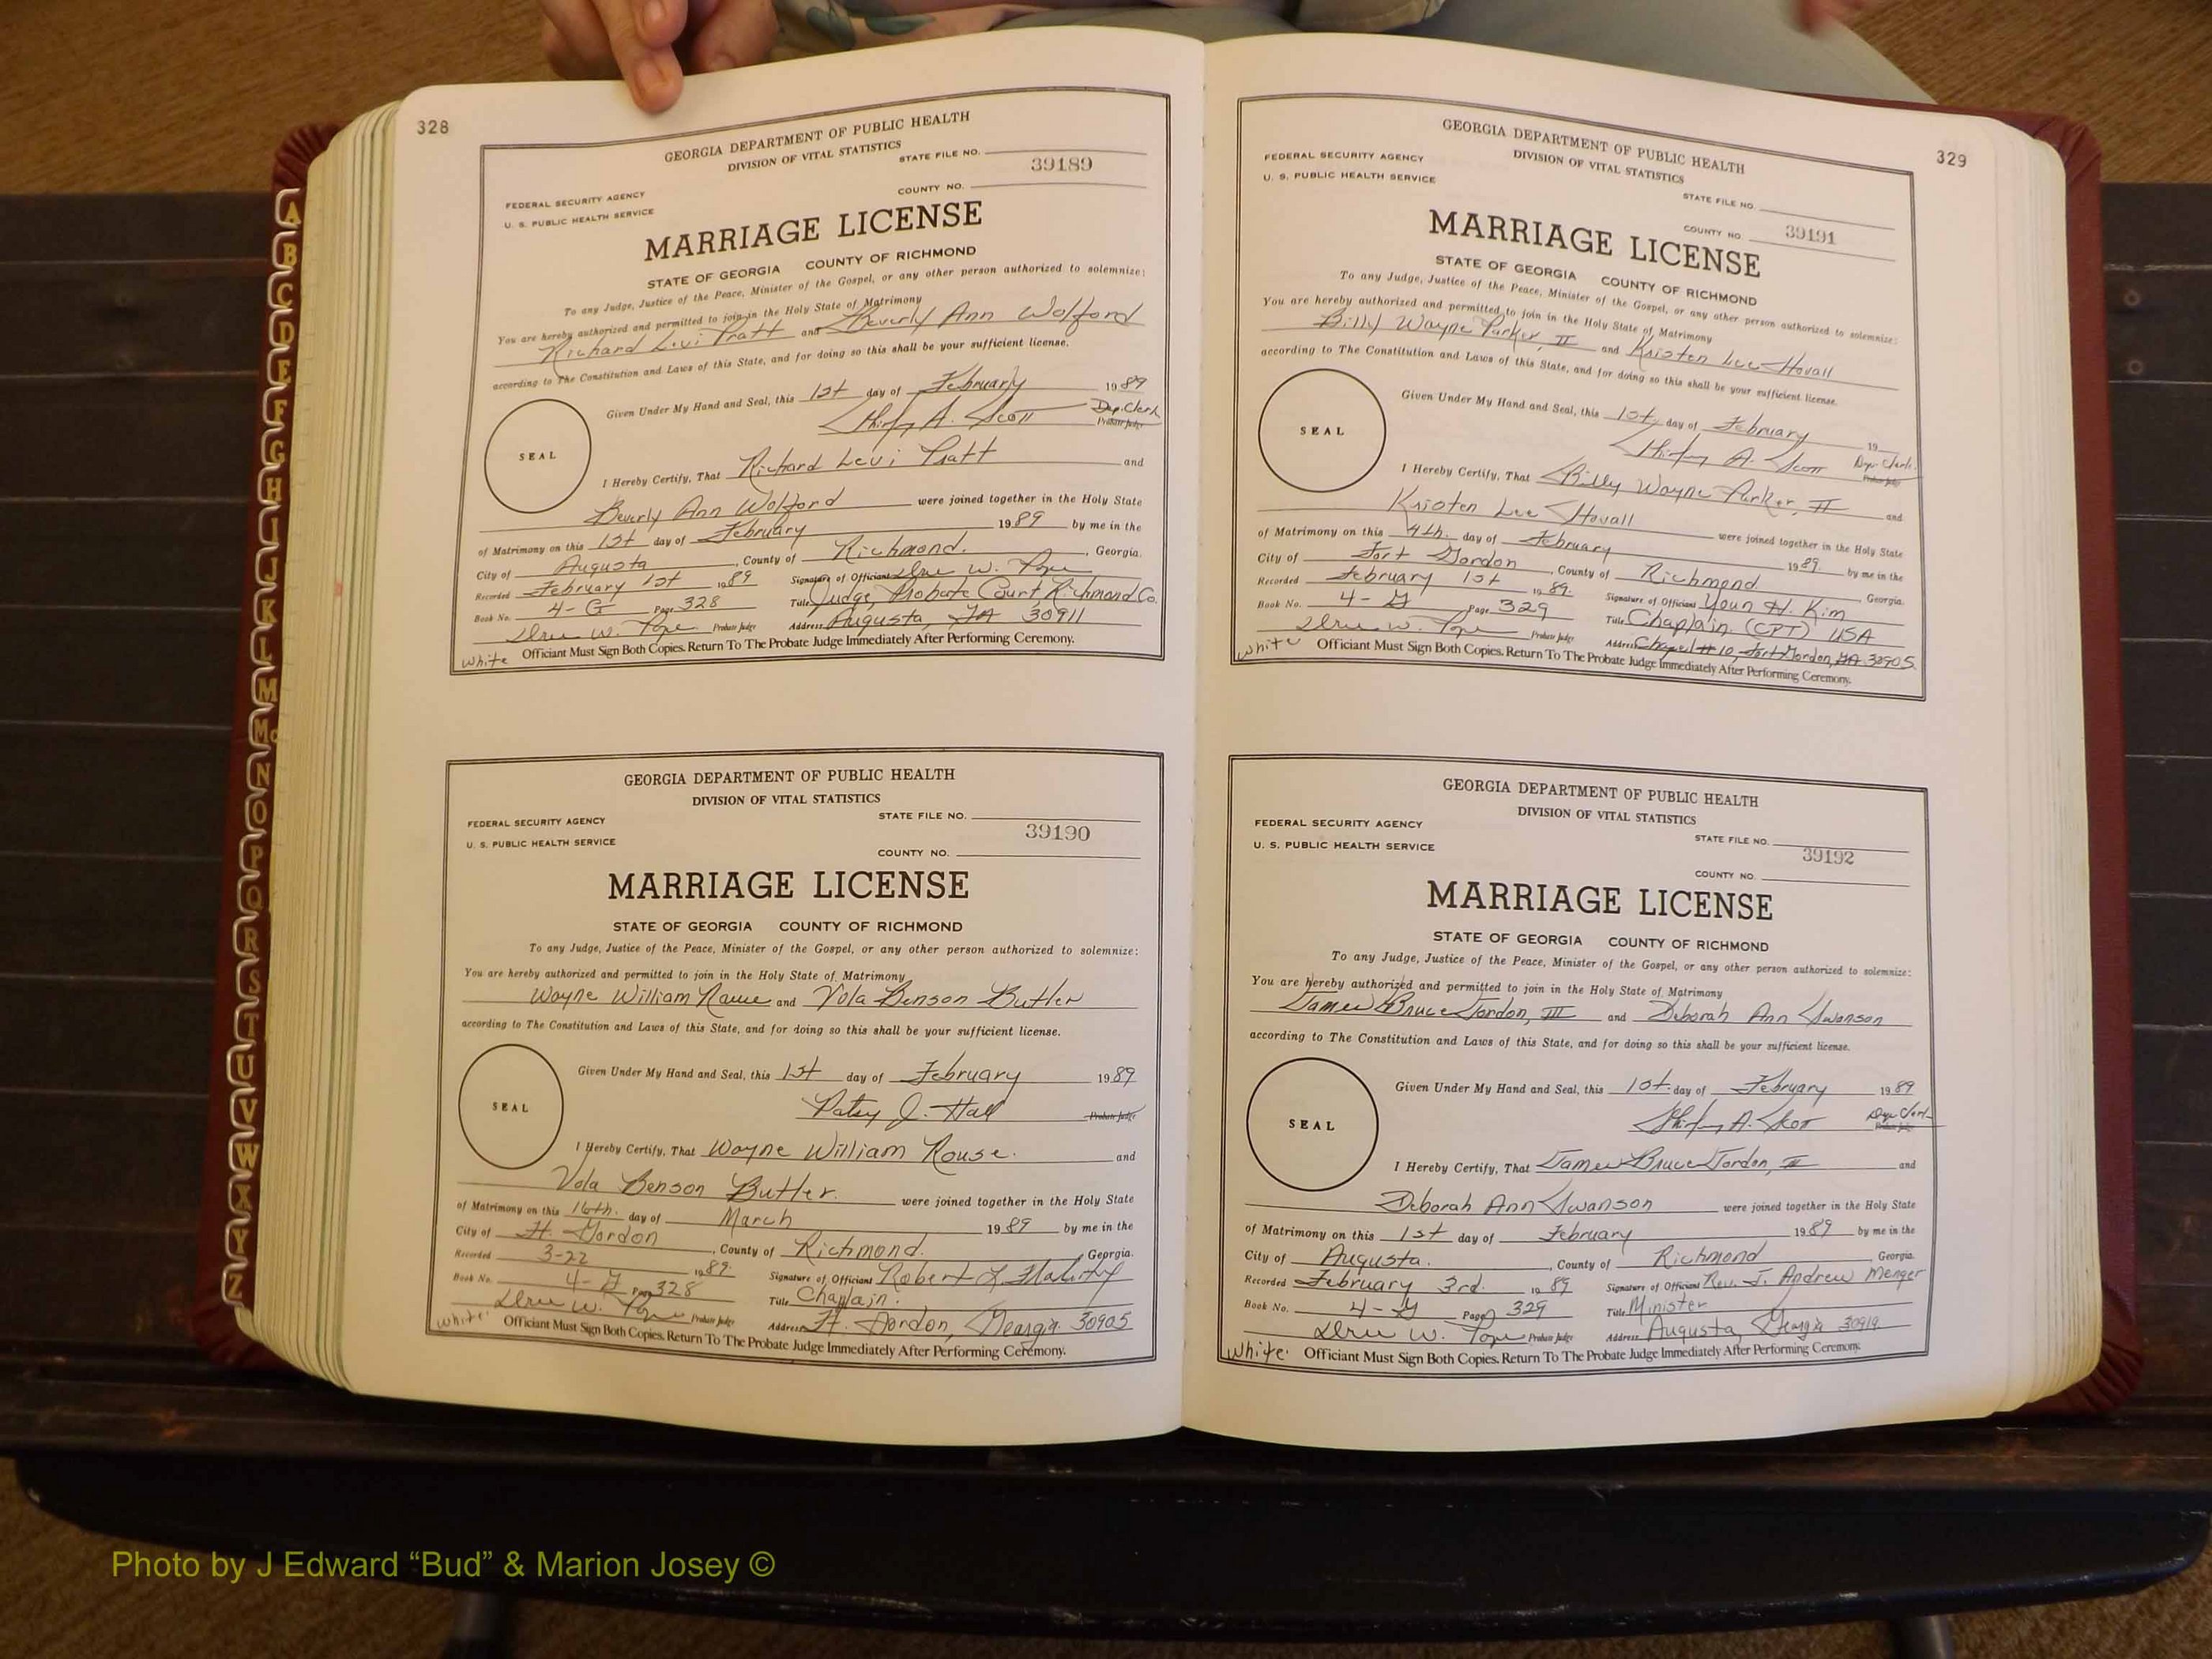 328
GEORGIA DEPARTMENT OF PUBLIC HEALTH
DIVISION OF VITAL STATISTICS
STATE FILE NO.
39189
FEDERAL SECURITY AGENCY
COUNTY NO.
U. S. PUBLIC HEALTH SERVICE
MARRIAGE LICENSE
STATE OF GEORGIA COUNTY OF RICHMOND
To any Judge, Justice of the Peace, Minister of the Gospel, or any other person authorized to solemnize:
You are hereby authorized and permitted to join in the Holy State of Matrimony
Richard Levi Pratt and Beverly Ann Wolford
according to The Constitution and Laws of this State, and for doing so this shall be your sufficient license.
Given Under My Hand and Seal, this 1st day of February 1989
Shirley A. Scott Dep. Clerk
Probate Judge
SEAL
I Hereby Certify, That Richard Levi Pratt and
Beverly Ann Wolford were joined together in the Holy State
of Matrimony on this 1st day of February 1989 by me in the
City of Augusta, County of Richmond, Georgia.
Recorded February 1st 1989 Signature of Officiant W. Pope
Book No. 4-G Page 328 Title Judge, Probate Court Richmond Co.
W. Pope Probate Judge Address Augusta, GA 30911
White Officiant Must Sign Both Copies. Return To The Probate Judge Immediately After Performing Ceremony.
GEORGIA DEPARTMENT OF PUBLIC HEALTH
DIVISION OF VITAL STATISTICS
STATE FILE NO.
FEDERAL SECURITY AGENCY
39190
U. S. PUBLIC HEALTH SERVICE
COUNTY NO.
MARRIAGE LICENSE
STATE OF GEORGIA COUNTY OF RICHMOND
To any Judge, Justice of the Peace, Minister of the Gospel, or any other person authorized to solemnize:
You are hereby authorized and permitted to join in the Holy State of Matrimony
Wayne William Rouse and Vola Benson Butler
according to The Constitution and Laws of this State, and for doing so this shall be your sufficient license.
Given Under My Hand and Seal, this 1st day of February 1989
Patsy J. Hall Probate Judge
SEAL
I Hereby Certify, That Wayne William Rouse. and
Vola Benson Butler. were joined together in the Holy State
of Matrimony on this 16th. day of March 1989 by me in the
City of Ft. Gordon, County of Richmond. Georgia.
Recorded 3-22 1989. Signature of Officiant Robert L.
Book No. 4-G Page 328 Title Chaplain.
W. Pope Probate Judge Address Ft. Gordon, Georgia 30905
White. Officiant Must Sign Both Copies. Return To The Probate Judge Immediately After Performing Ceremony.
329
GEORGIA DEPARTMENT OF PUBLIC HEALTH
DIVISION OF VITAL STATISTICS
FEDERAL SECURITY AGENCY
U. S. PUBLIC HEALTH SERVICE
STATE FILE NO.
COUNTY NO. 39191
MARRIAGE LICENSE
STATE OF GEORGIA COUNTY OF RICHMOND
To any Judge, Justice of the Peace, Minister of the Gospel, or any other person authorized to solemnize:
You are hereby authorized and permitted to join in the Holy State of Matrimony
Billy Wayne Parker, II and Kristen Lee Hovall
according to The Constitution and Laws of this State, and for doing so this shall be your sufficient license.
Given Under My Hand and Seal, this 1st. day of February 19
Shirley A. Scott Dep. Clerk
Probate Judge
SEAL
I Hereby Certify, That Billy Wayne Parker, II and
Kristen Lee Hovall were joined together in the Holy State
of Matrimony on this 4th. day of February 1989. by me in the
City of Fort Gordon, County of Richmond, Georgia.
Recorded February 1st 1989. Signature of Officiant Youn H. Kim
Book No. 4-G Page 329 Title Chaplain (CPT) USA
W. Pope Probate Judge Address Chapel # 10, Fort Gordon, GA 30905
White Officiant Must Sign Both Copies. Return To The Probate Judge Immediately After Performing Ceremony.
GEORGIA DEPARTMENT OF PUBLIC HEALTH
DIVISION OF VITAL STATISTICS
FEDERAL SECURITY AGENCY
STATE FILE NO.
U. S. PUBLIC HEALTH SERVICE
39192
COUNTY NO.
MARRIAGE LICENSE
STATE OF GEORGIA COUNTY OF RICHMOND
To any Judge, Justice of the Peace, Minister of the Gospel, or any other person authorized to solemnize:
You are hereby authorized and permitted to join in the Holy State of Matrimony
James Bruce Jordon, III and Deborah Ann Swanson
according to The Constitution and Laws of this State, and for doing so this shall be your sufficient license.
Given Under My Hand and Seal, this 1st. day of February 1989
Shirley A. Scott Dep. Clerk
Probate Judge
SEAL
I Hereby Certify, That James Bruce Jordon, III and
Deborah Ann Swanson were joined together in the Holy State
of Matrimony on this 1st day of February 1989 by me in the
City of Augusta., County of Richmond Georgia.
Recorded February 3rd. 1989 Signature of Officiant Rev. J. Andrew Menger
Book No. 4-G Page 329 Title Minister
W. Pope Probate Judge Address Augusta, Georgia 30919
White. Officiant Must Sign Both Copies. Return To The Probate Judge Immediately After Performing Ceremony.
A
B
C
D
E
F
G
H
I
J
K
L
M
Mc
N
O
P
Q
R
S
T
U
V
W
X
Y
Z
Photo by J Edward “Bud” & Marion Josey ©